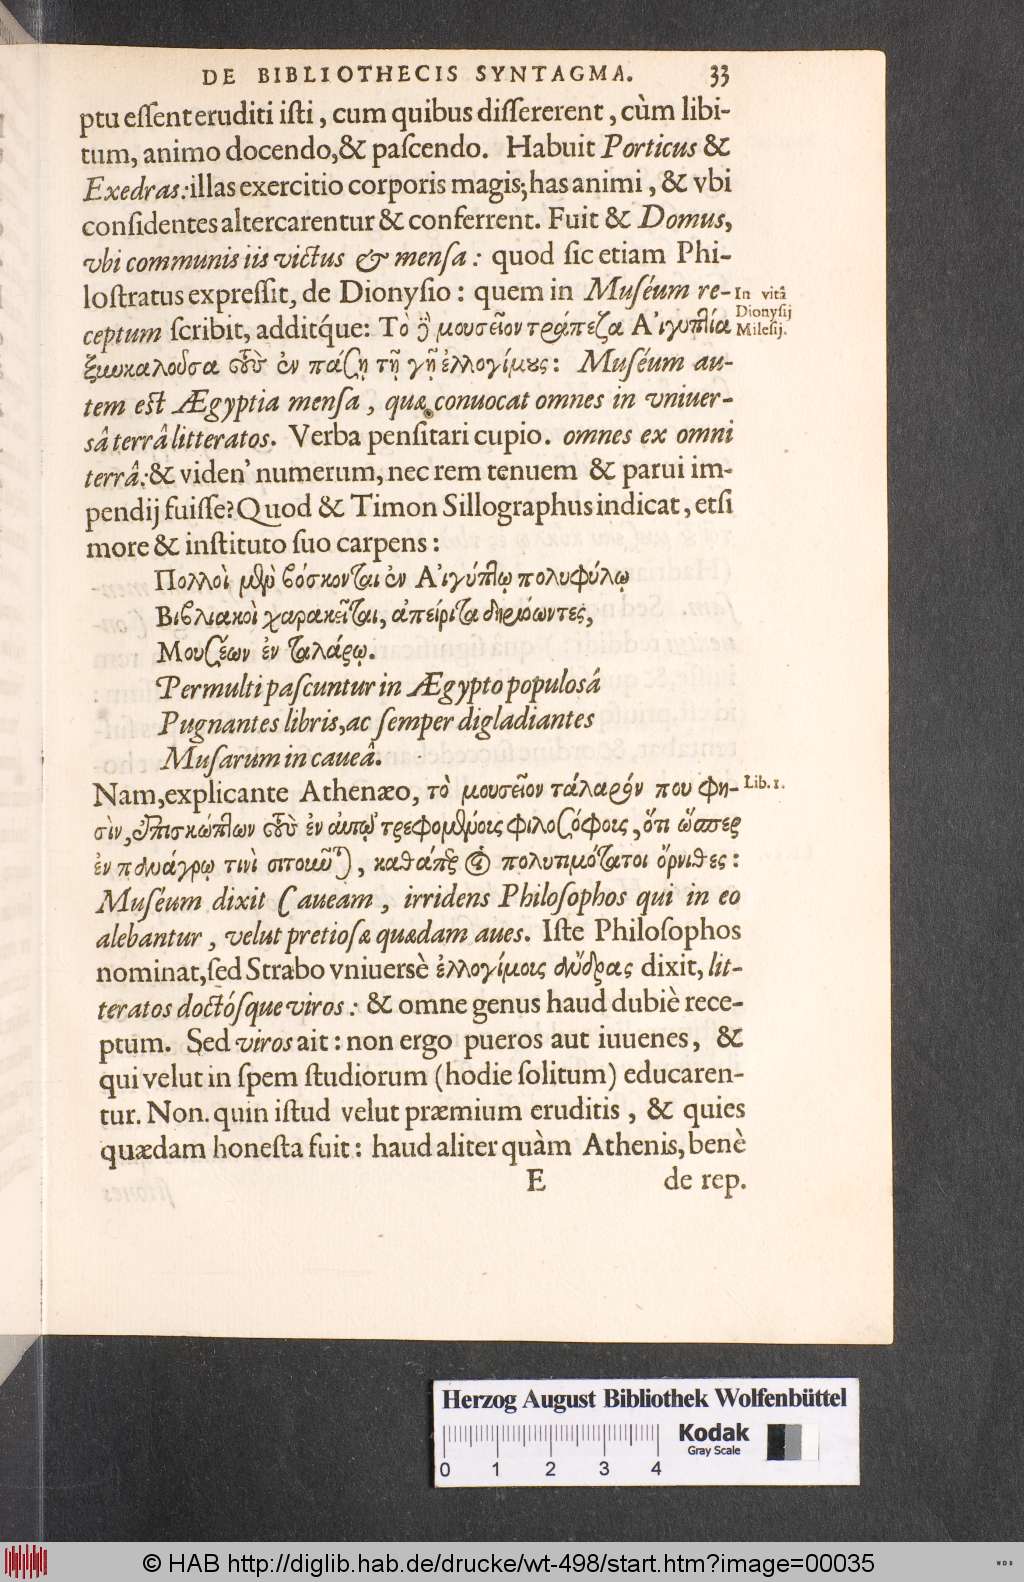 DE BIBLIOTHECIS SYNTAGMA. 33
ptu essent eruditi isti, cum quibus dissererent, cùm libi-
tum, animo docendo, & pascendo. Habuit Porticus &
Exedras: illas exercitio corporis magis; has animi, & vbi
considentes altercarentur & conferrent. Fuit & Domus,
vbi communis iis victus & mensa: quod sic etiam Phi-
lostratus expressit, de Dionysio: quem in Muséum re-
In vitâ
Dionysij
Milesij.
ceptum scribit, additque: Τὸ ἢ μουσεῖον τράπεζα Αἰγυπτία
ξυγκαλοῦσα σοὺς ἐν πάσῃ τῇ γῇ ἐλλογίμους: Muséum au-
tem est Ægyptia mensa, quæ conuocat omnes in vniuer-
sâ terrâ litteratos. Verba pensitari cupio. omnes ex omni
terrâ: & viden' numerum, nec rem tenuem & parui im-
pendij fuisse? Quod & Timon Sillographus indicat, etsi
more & instituto suo carpens:
Πολλοὶ μὲν βόσκονται ἐν Αἰγύπτῳ πολυφύλῳ
Βιβλιακοὶ χαρακεῖται, ἀπείριτα δηριόωντες,
Μουσέων ἐν ταλάρῳ.
Permulti pascuntur in Ægypto populosâ
Pugnantes libris, ac semper digladiantes
Musarum in caueâ.
Nam, explicante Athenæo, τὸ μουσεῖον τάλαρόν που φη-
Lib. 1.
σὶν, ἐπισκώπτων τοὺς ἐν αὐτῷ τρεφομένοις φιλοσόφοις, ὅτι ὥσπερ
ἐν πανάγρῳ τινὶ σιτοῦνται, καθάπερ οἱ πολυτιμότατοι ὄρνιθες:
Muséum dixit Caueam, irridens Philosophos qui in eo
alebantur, velut pretiosæ quædam aues. Iste Philosophos
nominat, sed Strabo vniuersè ἐλλογίμοις ἄνδρας dixit, lit-
teratos doctósque viros: & omne genus haud dubiè rece-
ptum. Sed viros ait: non ergo pueros aut iuuenes, &
qui velut in spem studiorum (hodie solitum) educaren-
tur. Non. quin istud velut præmium eruditis, & quies
quædam honesta fuit: haud aliter quàm Athenis, benè
E de rep.
Herzog August Bibliothek Wolfenbüttel
Kodak
Gray Scale
0 1 2 3 4
© HAB http://diglib.hab.de/drucke/wt-498/start.htm?image=00035